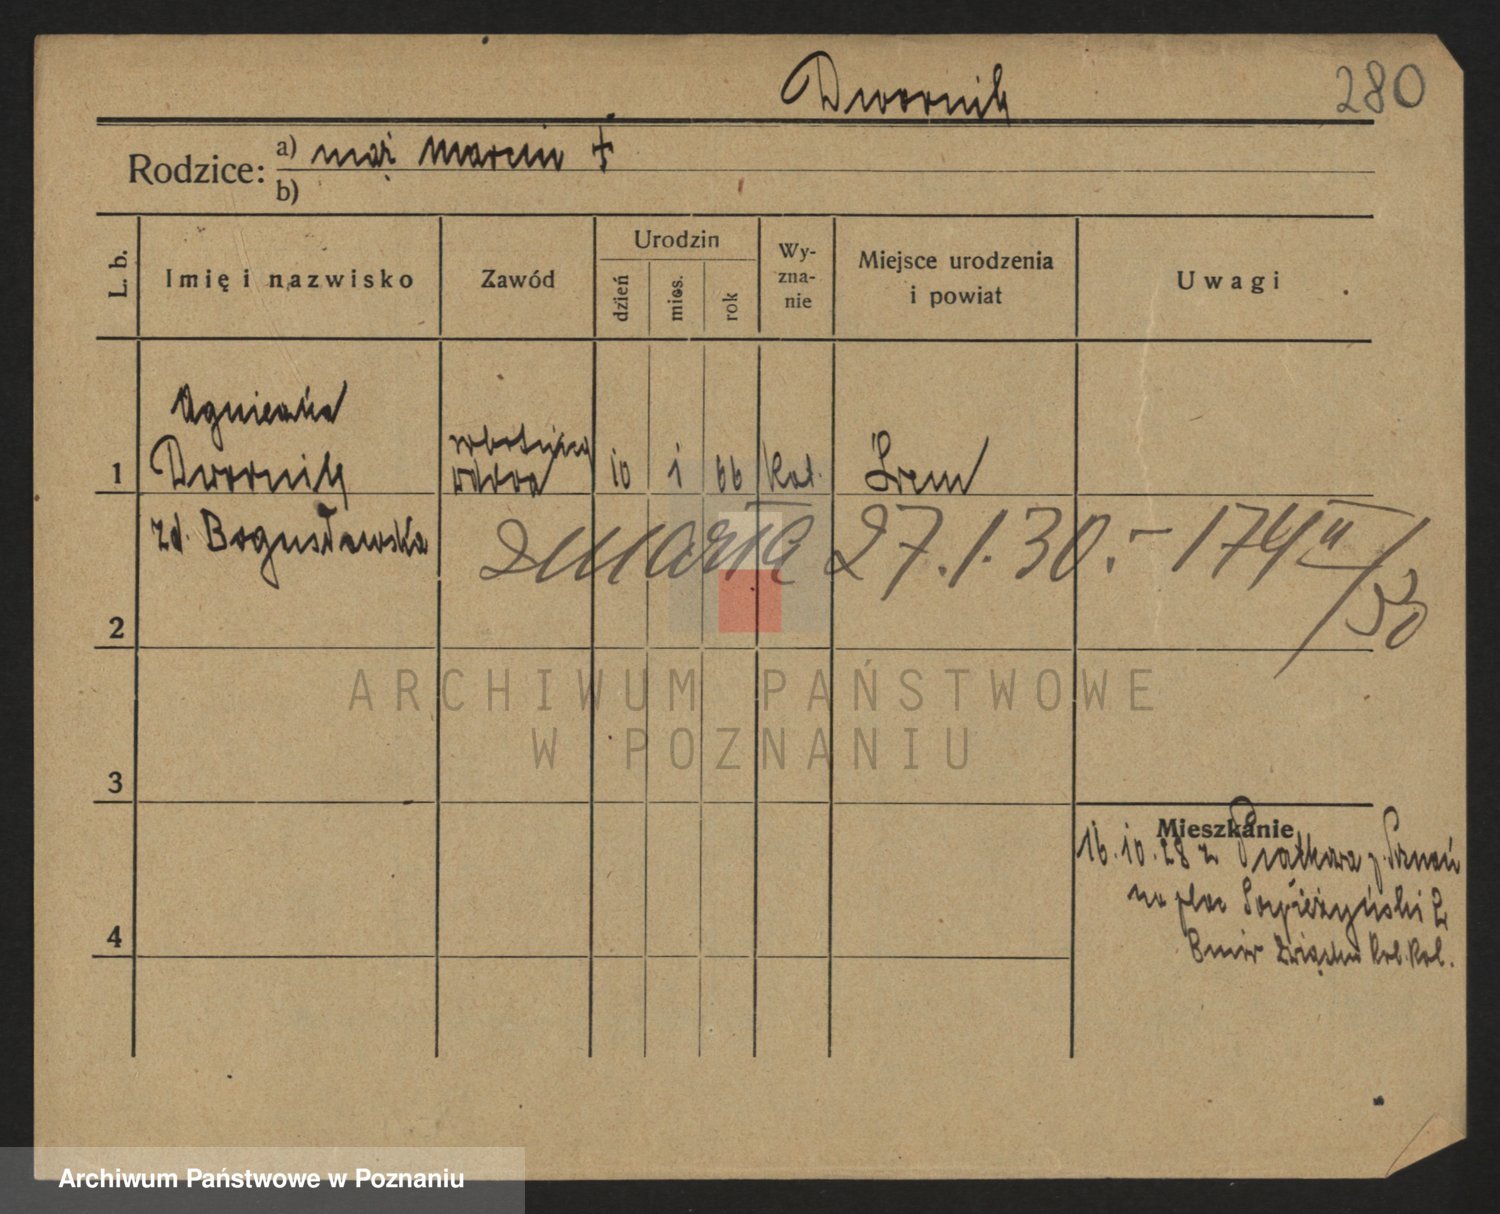 Dwornik
280
Rodzice: a) mąż Marcin +
b)
L. b.
Imię i nazwisko
Zawód
Urodzin
dzień
mies.
rok
Wy-
zna-
nie
Miejsce urodzenia
i powiat
Uwagi
1
Agnieszka
Dwornik
zd. Bogusławska
robotnica
wdowa
10
1
66
Kat.
Śrem
zmarła 27.1.30. - 174 II/30
2
3
4
Mieszkanie
16.10.28 z Piątkowa p. Poznań
na plac Sapieżyński 2
Związku Rob. Rol.
ARCHIWUM PAŃSTWOWE
W POZNANIU
Archiwum Państwowe w Poznaniu